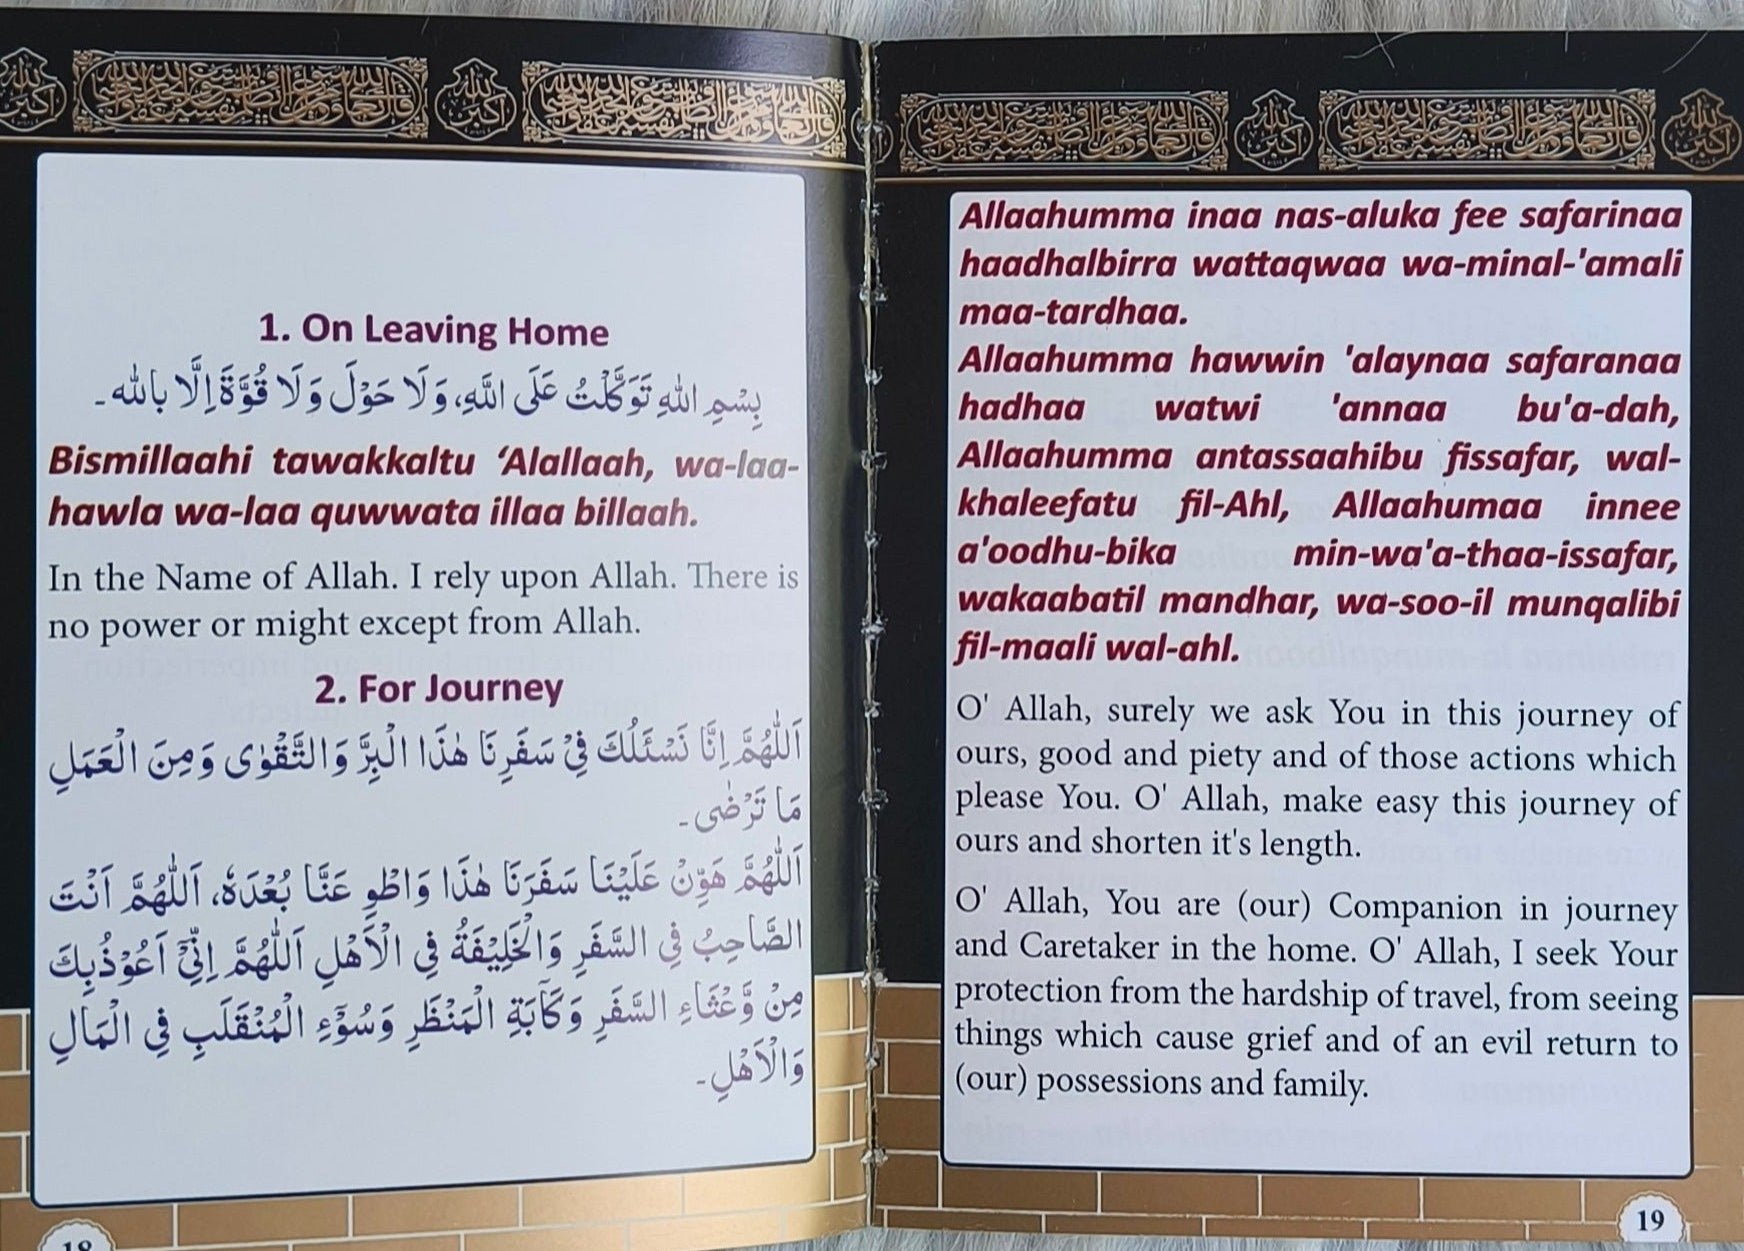 1. On Leaving Home
بِسْمِ اللهِ تَوَكَّلْتُ عَلَى اللَّهِ، وَلَا حَوْلَ وَلَا قُوَّةَ اِلَّا بِاللهِ ۔
Bismillaahi tawakkaltu ‘Alallaah, wa-laa-
hawla wa-laa quwwata illaa billaah.
In the Name of Allah. I rely upon Allah. There is
no power or might except from Allah.
2. For Journey
اَللّٰهُمَّ اِنَّا نَسْئَلُكَ فِيْ سَفَرِنَا هٰذَا الْبِرَّ وَالتَّقْوٰى وَمِنَ الْعَمَلِ
مَا تَرْضٰى ۔
اَللّٰهُمَّ هَوِّنْ عَلَيْنَا سَفَرَنَا هٰذَا وَاطْوِ عَنَّا بُعْدَهٗ، اَللّٰهُمَّ اَنْتَ
الصَّاحِبُ فِي السَّفَرِ وَالْخَلِيْفَةُ فِي الْاَهْلِ اَللّٰهُمَّ اِنِّيْٓ اَعُوْذُبِكَ
مِنْ وَّعْثَاءِ السَّفَرِ وَكَآبَةِ الْمَنْظَرِ وَسُوْٓءِ الْمُنْقَلَبِ فِي الْمَالِ
وَالْاَهْلِ ۔
18
Allaahumma inaa nas-aluka fee safarinaa
haadhalbirra wattaqwaa wa-minal-'amali
maa-tardhaa.
Allaahumma hawwin 'alaynaa safaranaa
hadhaa watwi 'annaa bu'a-dah,
Allaahumma antassaahibu fissafar, wal-
khaleefatu fil-Ahl, Allaahumaa innee
a'oodhu-bika min-wa'a-thaa-issafar,
wakaabatil mandhar, wa-soo-il munqalibi
fil-maali wal-ahl.
O' Allah, surely we ask You in this journey of
ours, good and piety and of those actions which
please You. O' Allah, make easy this journey of
ours and shorten it's length.
O' Allah, You are (our) Companion in journey
and Caretaker in the home. O' Allah, I seek Your
protection from the hardship of travel, from seeing
things which cause grief and of an evil return to
(our) possessions and family.
19